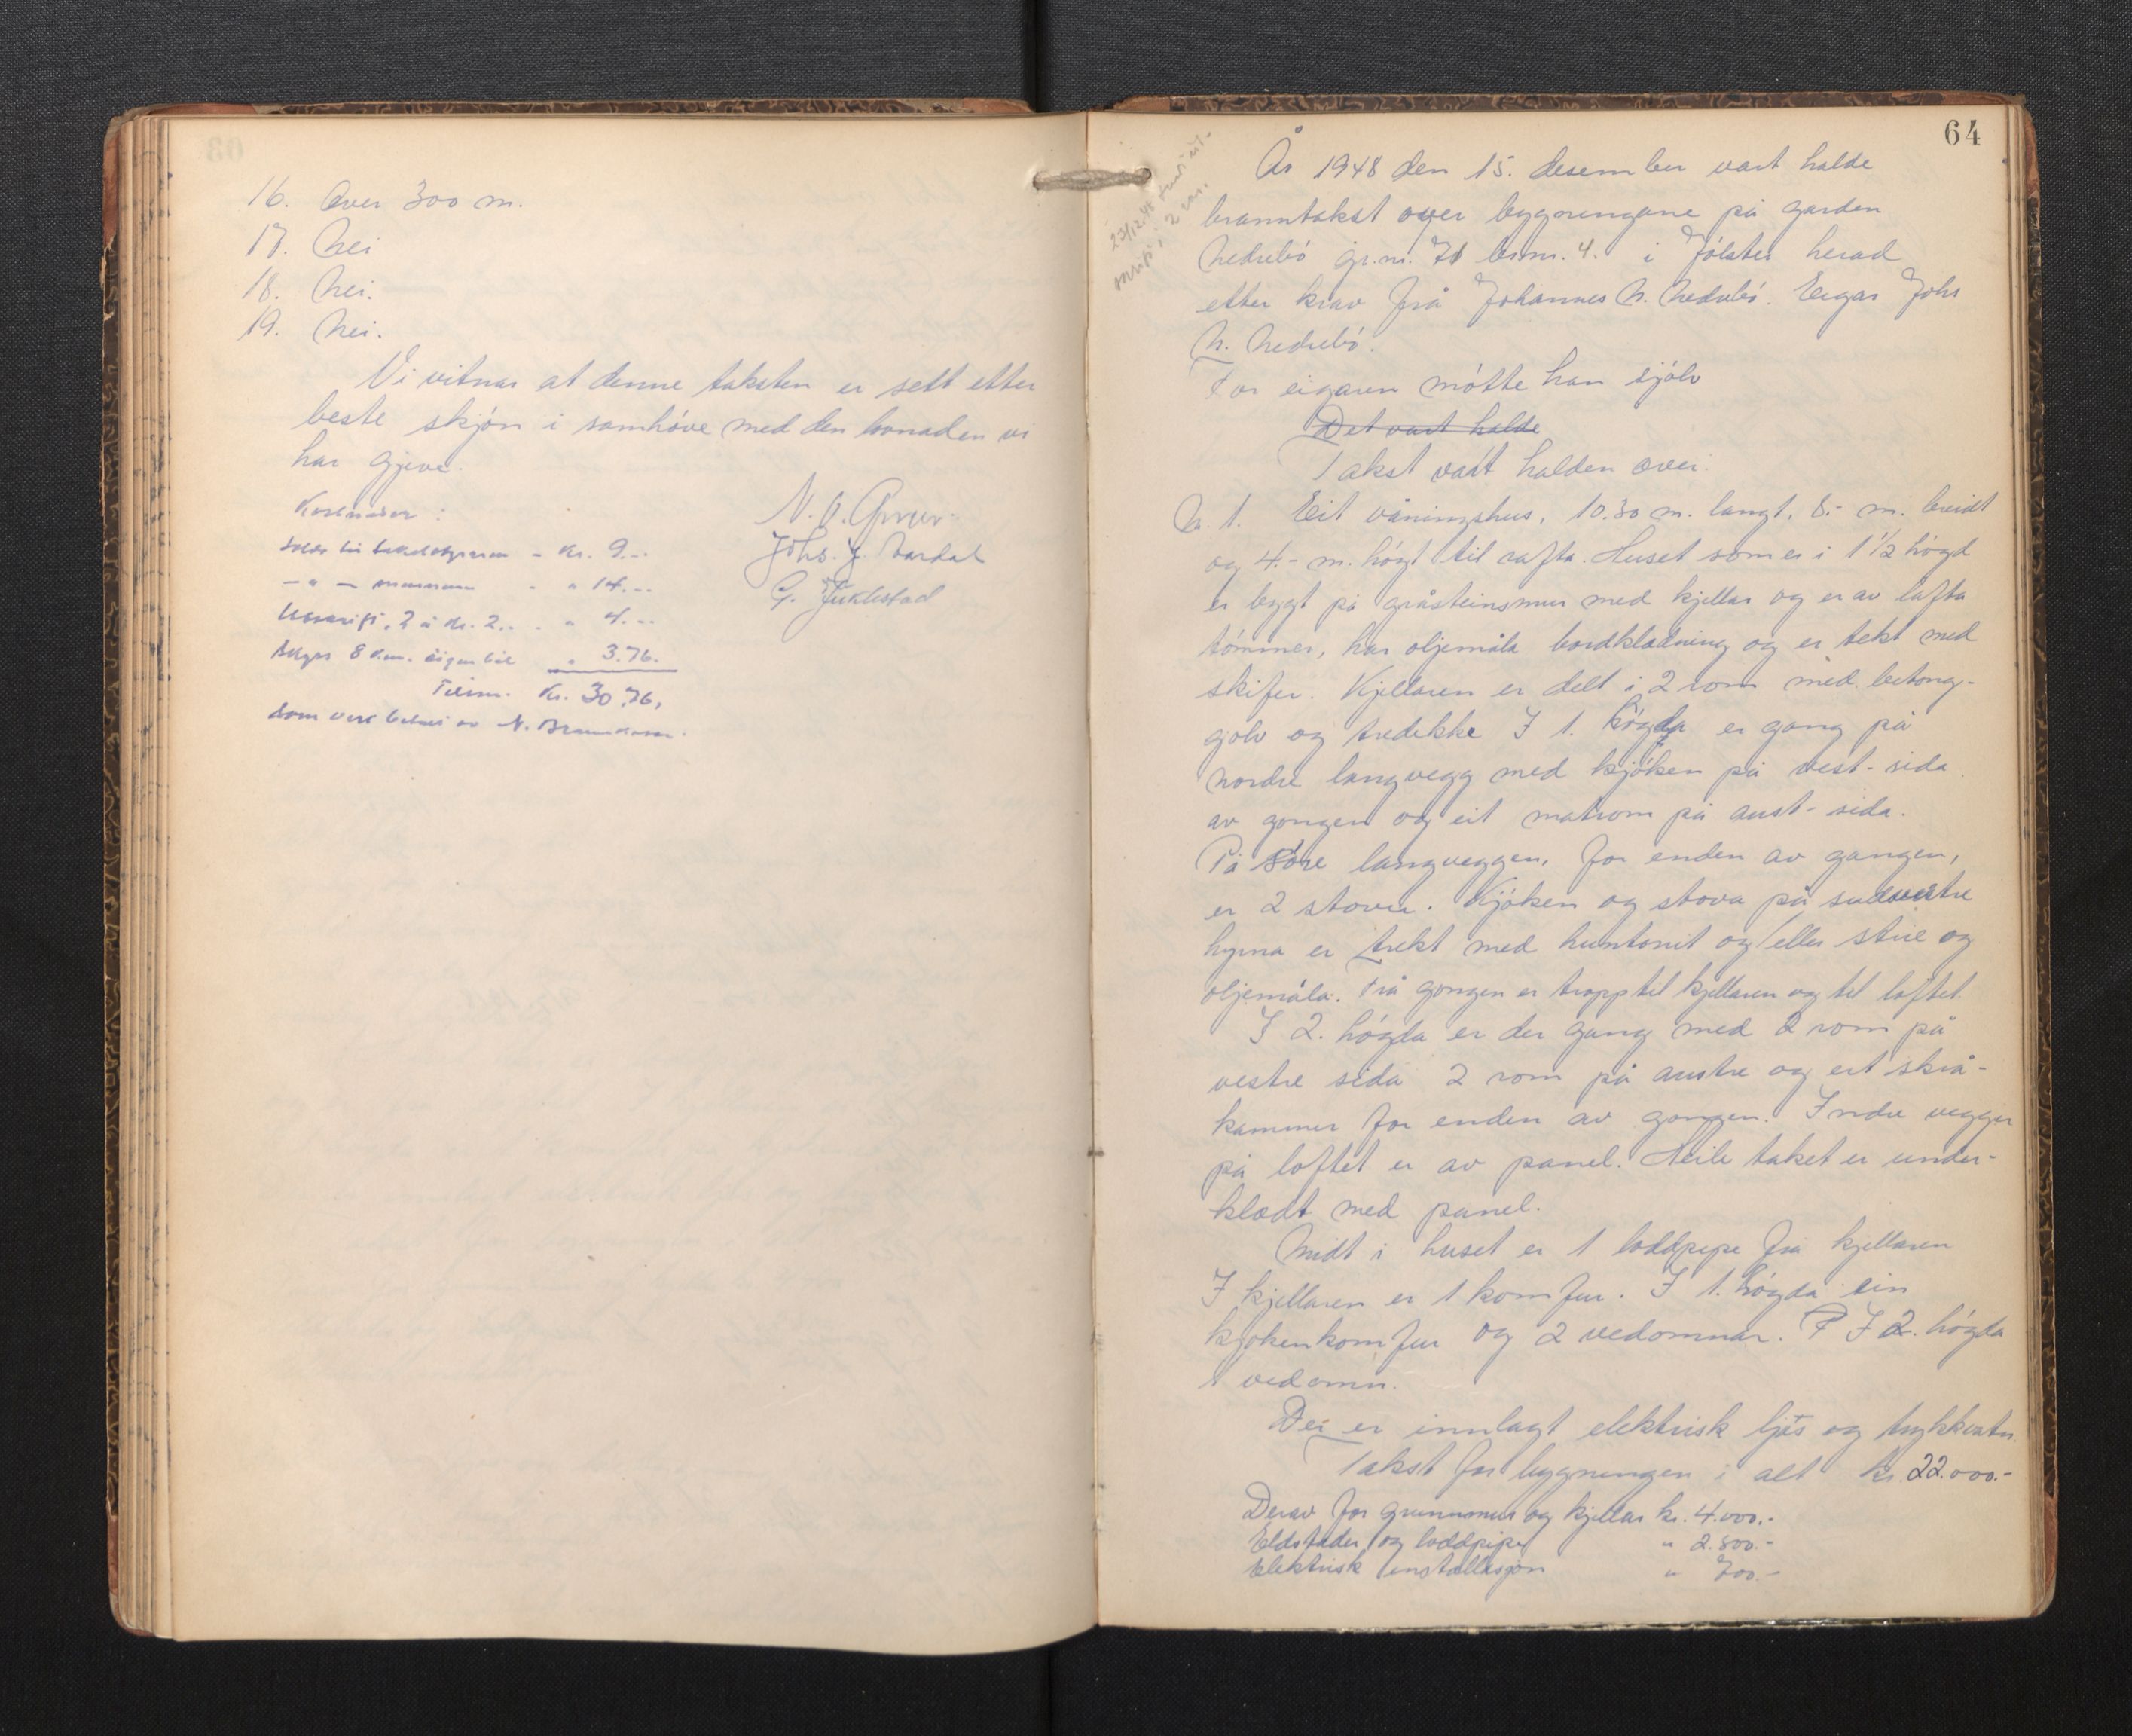 16. Over 300 m.
17. Nei
18. Nei.
19. Nei.
Vi vitnar at denne taksten er sett etter
beste skjön i samhöve med den lovnaden vi
har gjeve.
Kostnader:
- kr. 9.--
- " - " 14.--
Utskrift, 2 à kr. 2.. " 4.--
8 km. eigen bil " 3.76.
Tilsm. Kr. 30,76,
som vert betalt av N. Brannkasse.
Johs. J. Aardal
G. Juklestad
64
År 1948 den 15. desember vart halde
branntakst over bygningane på garden
Nedrebö gr.nr. 71 br.nr. 4. i Jölster herad
etter krav frå Johannes N. Nedrebö. Eigar Johs
N. Nedrebö.
For eigaren mötte han sjölv
Det vart halde
Takst vart halden over:
Nr. 1. Eit våningshus, 10.30 m. langt, 8.- m. breidt
og 4.- m. högt til rafta. Huset som er i 1 1/2 högd
er bygt på gråsteinsmur med kjellar og er av lafta
tömmer, har oljemåla bordklædning og er tekt med
skifer. Kjellaren er delt i 2 rom med betong-
golv og tredekke I 1. högda er gang på
nordre langvegg med kjöken på vest-sida
av gongen og eit matrom på aust-sida.
På söre langveggen, for enden av gangen,
er 2 stover. Kjöken og stova på sudvestre
hyrna er trekt med huntonit og/eller strie og
oljemåla. Frå gongen er trapp til kjellaren og til loftet.
I 2. högda er der gang med 2 rom på
vestre sida 2 rom på austre og eit skrå-
kammer for enden av gongen. Indre vegger
på loftet er av panel. Heile taket er under-
klædt med panel.
Midt i huset er 1 loddpipe frå kjellaren
I kjellaren er 1 komfur. I 1. högda ein
kjökenkomfur og 2 vedomnar. I 2. högda
1 vedomn.
Der er innlagt elektrisk ljös og trykkvatn.
Takst for bygningen i alt kr. 22.000.-
Derav for grunnmur og kjellar kr. 4.000.-
Eldstader og loddpipe " 2.800.-
Elektrisk installasjon " 700.-